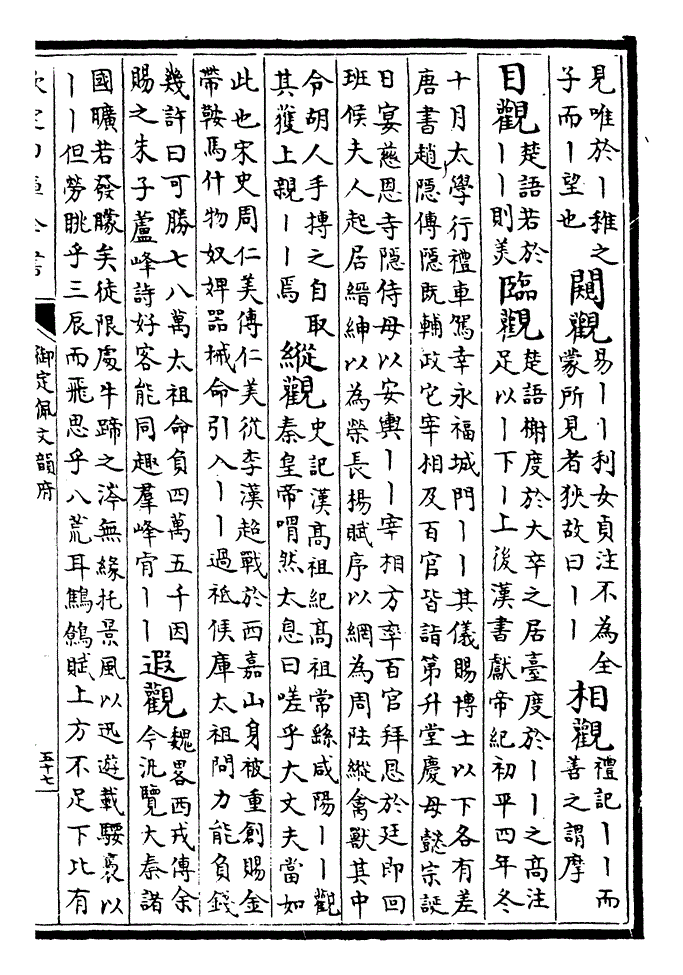 見唯於丨稚之
子而丨望也
闚觀
易丨丨利女貞注不為全
蒙所見者狹故曰丨丨
相觀
禮記丨丨而
善之謂摩
目觀
楚語若於
丨丨則美
臨觀
楚語榭度於大卒之居臺度於丨丨之高注
足以丨下丨上後漢書獻帝紀初平四年冬
十月太學行禮車駕幸永福城門丨丨其儀賜博士以下各有差
唐書趙隱傳隱既輔政它宰相及百官皆詣第升堂慶母懿宗誕
日宴慈恩寺隱侍母以安輿丨丨宰相方率百官拜恩於廷即回
班侯夫人起居縉紳以為榮長楊賦序以網為周阹縱禽獸其中
令胡人手搏之自取
其獲上親丨丨焉
縱觀
史記漢高祖紀高祖常繇咸陽丨丨觀
秦皇帝喟然太息曰嗟乎大丈夫當如
此也宋史周仁美傳仁美從李漢超戰於西嘉山身被重創賜金
帶鞍馬什物奴婢器械命引入丨丨過祗候庫太祖問力能負錢
幾許曰可勝七八萬太祖命負四萬五千因
賜之朱子蘆峰詩好客能同趣羣峰肯丨丨
遐觀
魏畧西戎傳余
今汎覽大秦諸
國曠若發矇矣徒限處牛蹄之涔無緣托景風以迅遊載騕褭以
丨丨但勞眺乎三辰而飛思乎八荒耳鷦鷯賦上方不足下比有
欽定四庫全書
御定佩文韻府
五十七